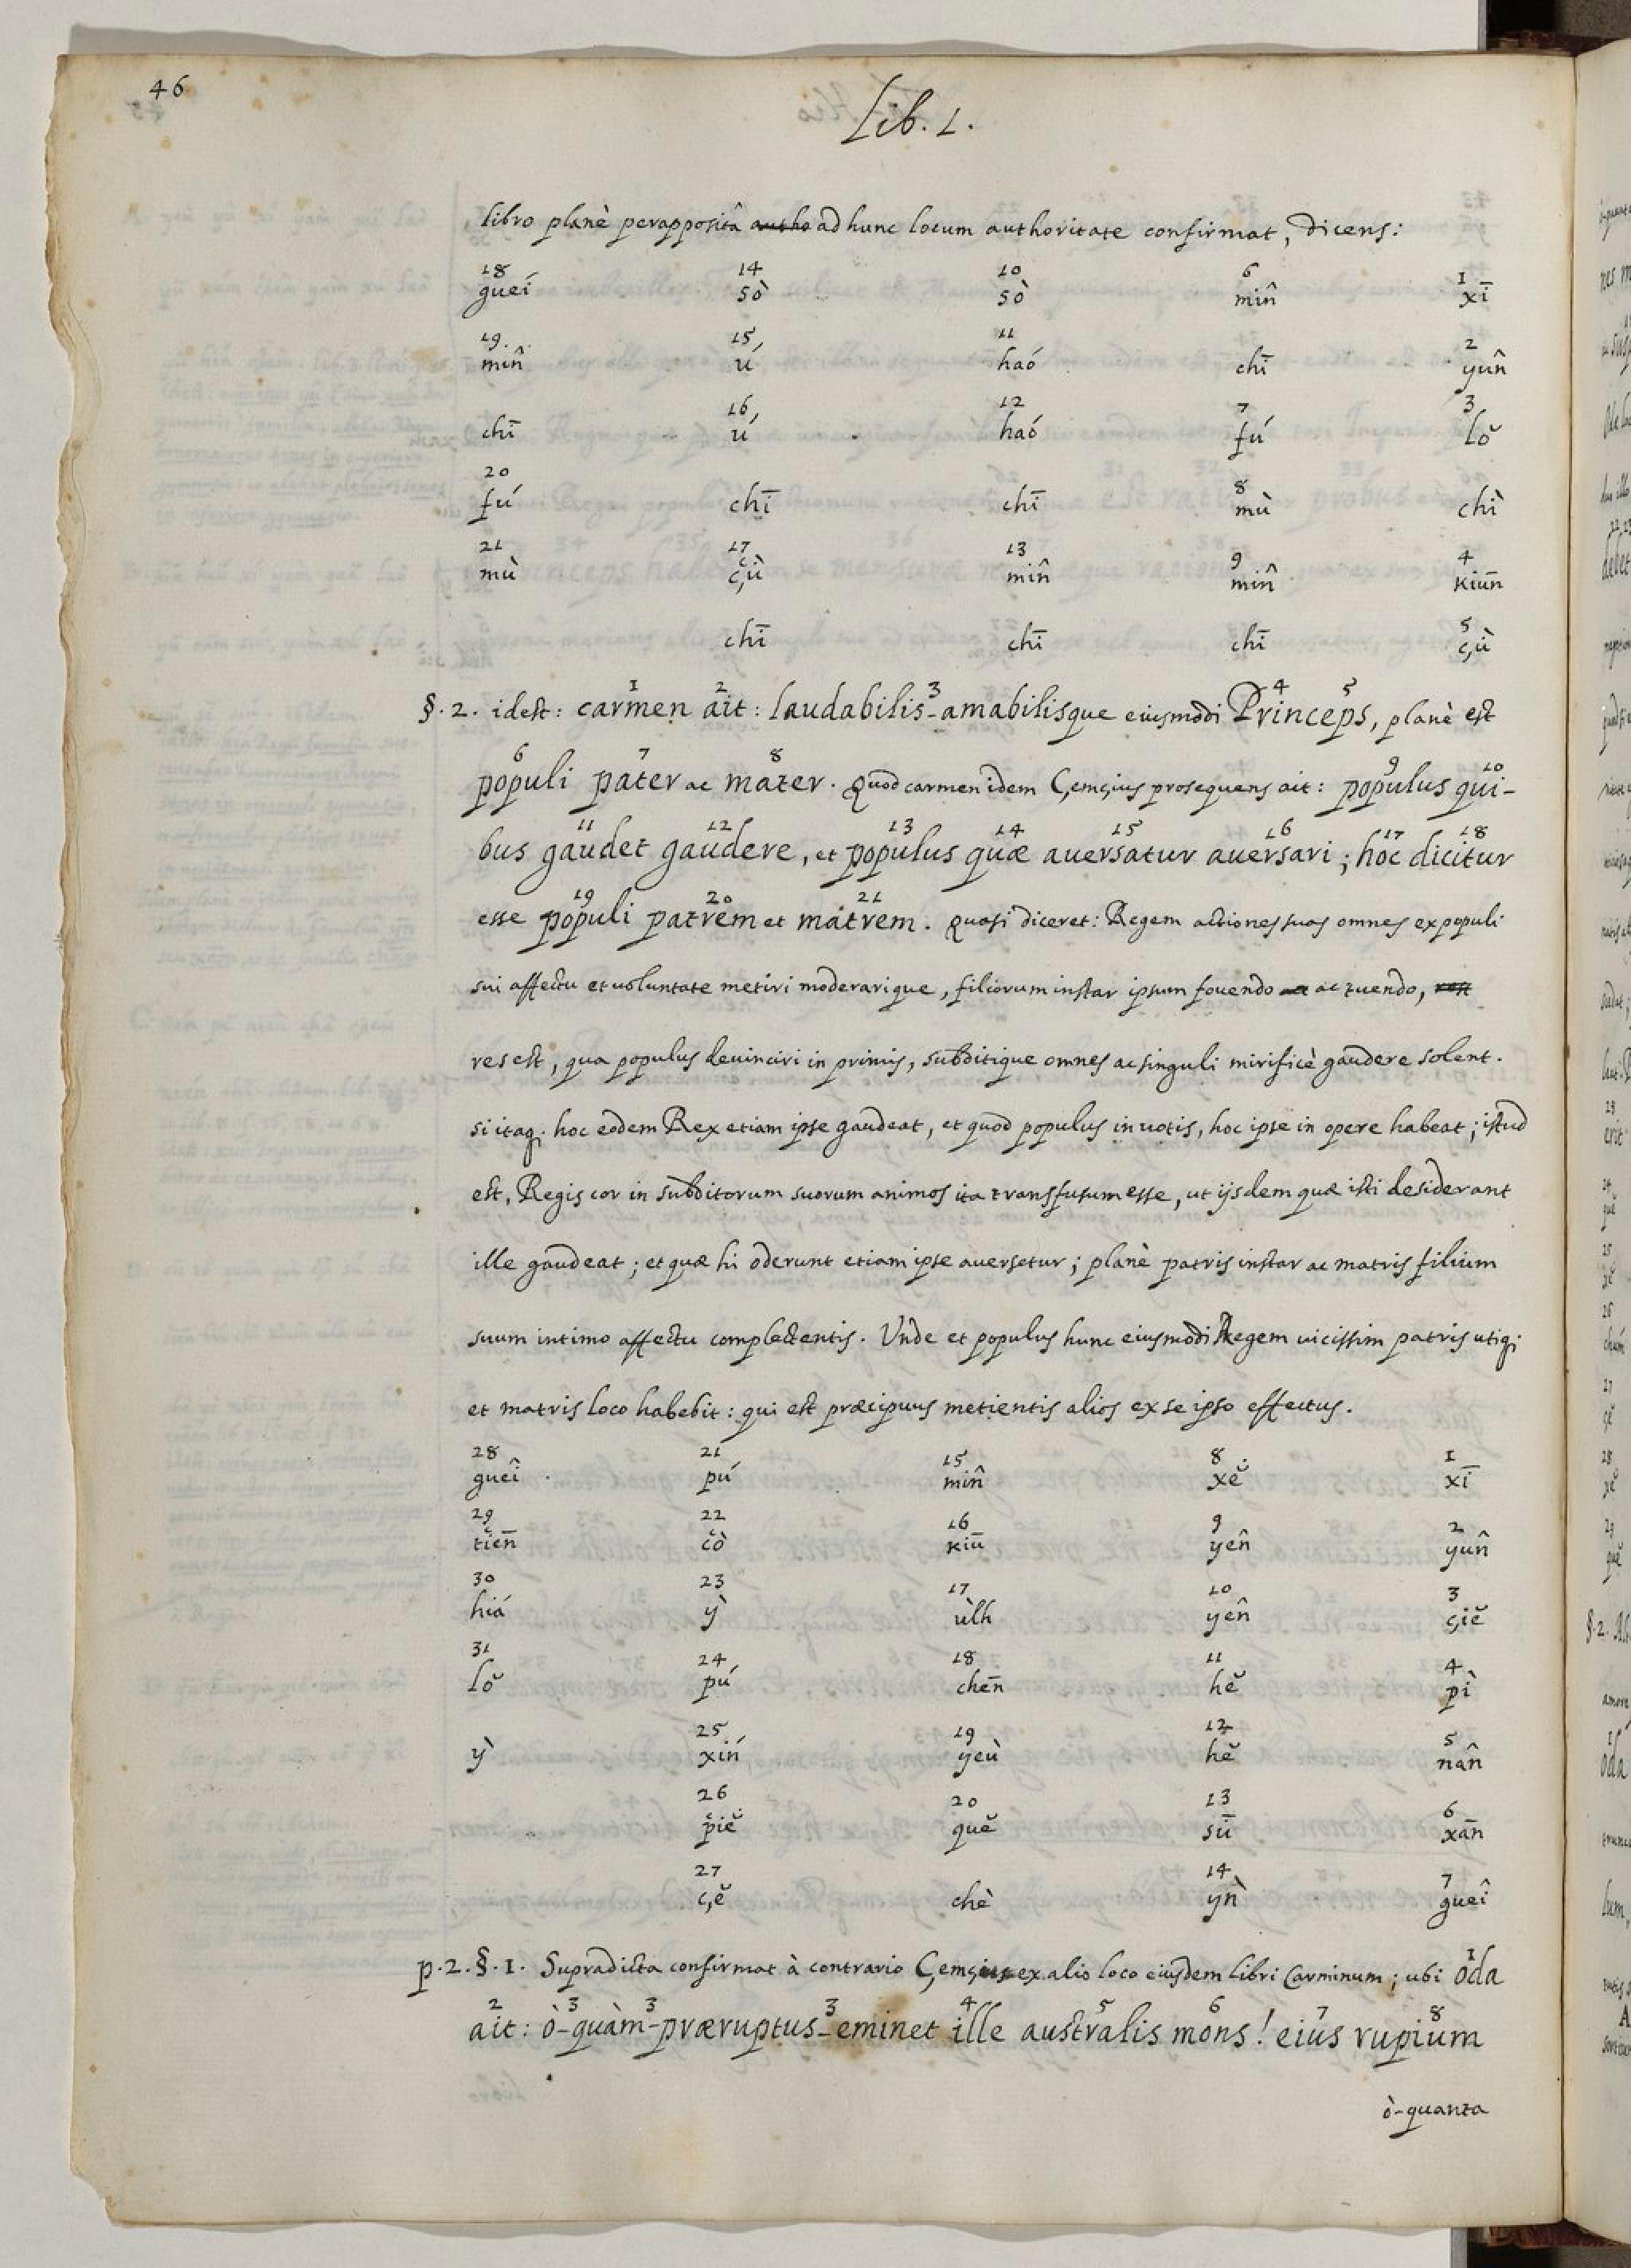 46
Lib. 1.
libro planè perapposità autho ad hunc locum authoritate confirmat, dicens:
18 14 10 6 1
gueí sò sò min̂ xī
19. 15 11 2
min̂ ú haó chī yûn
16 12 7 3
chī ú haó fú lŏ
20 8
fú chī chī mù chì
21 17 13 9 4
mù çù min̂ min̂ kiūn
5
chī chī chī çù
1 2 3 4 5
§. 2. idest: carmen ait: laudabilis-amabilisque eiusmodi Princeps, planè est
6 7 8 9 10
populi pater ac mater. Quod carmen idem Çemçius prosequens ait: populus qui-
11 12 13 14 15 16 17 18
bus gaudet gaudere, et populus quæ auersatur auersari; hoc dicitur
19 20 21
esse populi patrem et matrem. Quasi diceret: Regem actiones suas omnes ex populi
sui affectu et uoluntate metiri moderarique, filiorum instar ipsum fouendo ac tuendo,
res est, qua populus deuinciri in primis, subditique omnes ac singuli mirificè gaudere solent.
si itaq; hoc eodem Rex etiam ipse gaudeat, et quod populus in uotis, hoc ipse in opere habeat; istud
est, Regis cor in subditorum suorum animos ita transfusum esse, ut ijsdem quæ isti desiderant
ille gaudeat; et quæ hi oderunt etiam ipse auersetur; planè patris instar ac matris filium
suum intimo affectu complectentis. Vnde et populus hunc eiusmodi Regem uicissim patris utiq;
et matris loco habebit: qui est præcipuus metientis alios ex se ipso effectus.
28 21 15 8 1
gueî pú min̂ xĕ xī
29 22 16 9 2
tiēn cò kiū yên yûn
30 23 17 10 3
hiá ỳ ùlh yên çiĕ
31 24 18 11 4
lŏ pú chēn hĕ pì
25 19 12 5
ỳ xiń yeù hĕ nân
26 20 13 6
piĕ quĕ sū xān
27 14 7
çĕ chè yǹ gueî
1
p. 2. §. 1. Supradicta confirmat à contrario Çemçius ex alio loco eiusdem libri Carminum; ubi oda
2 3 3 3 4 5 6 7 8
ait: ò-quàm-præruptus-eminet ille australis mons! eius rupium
ò-quanta